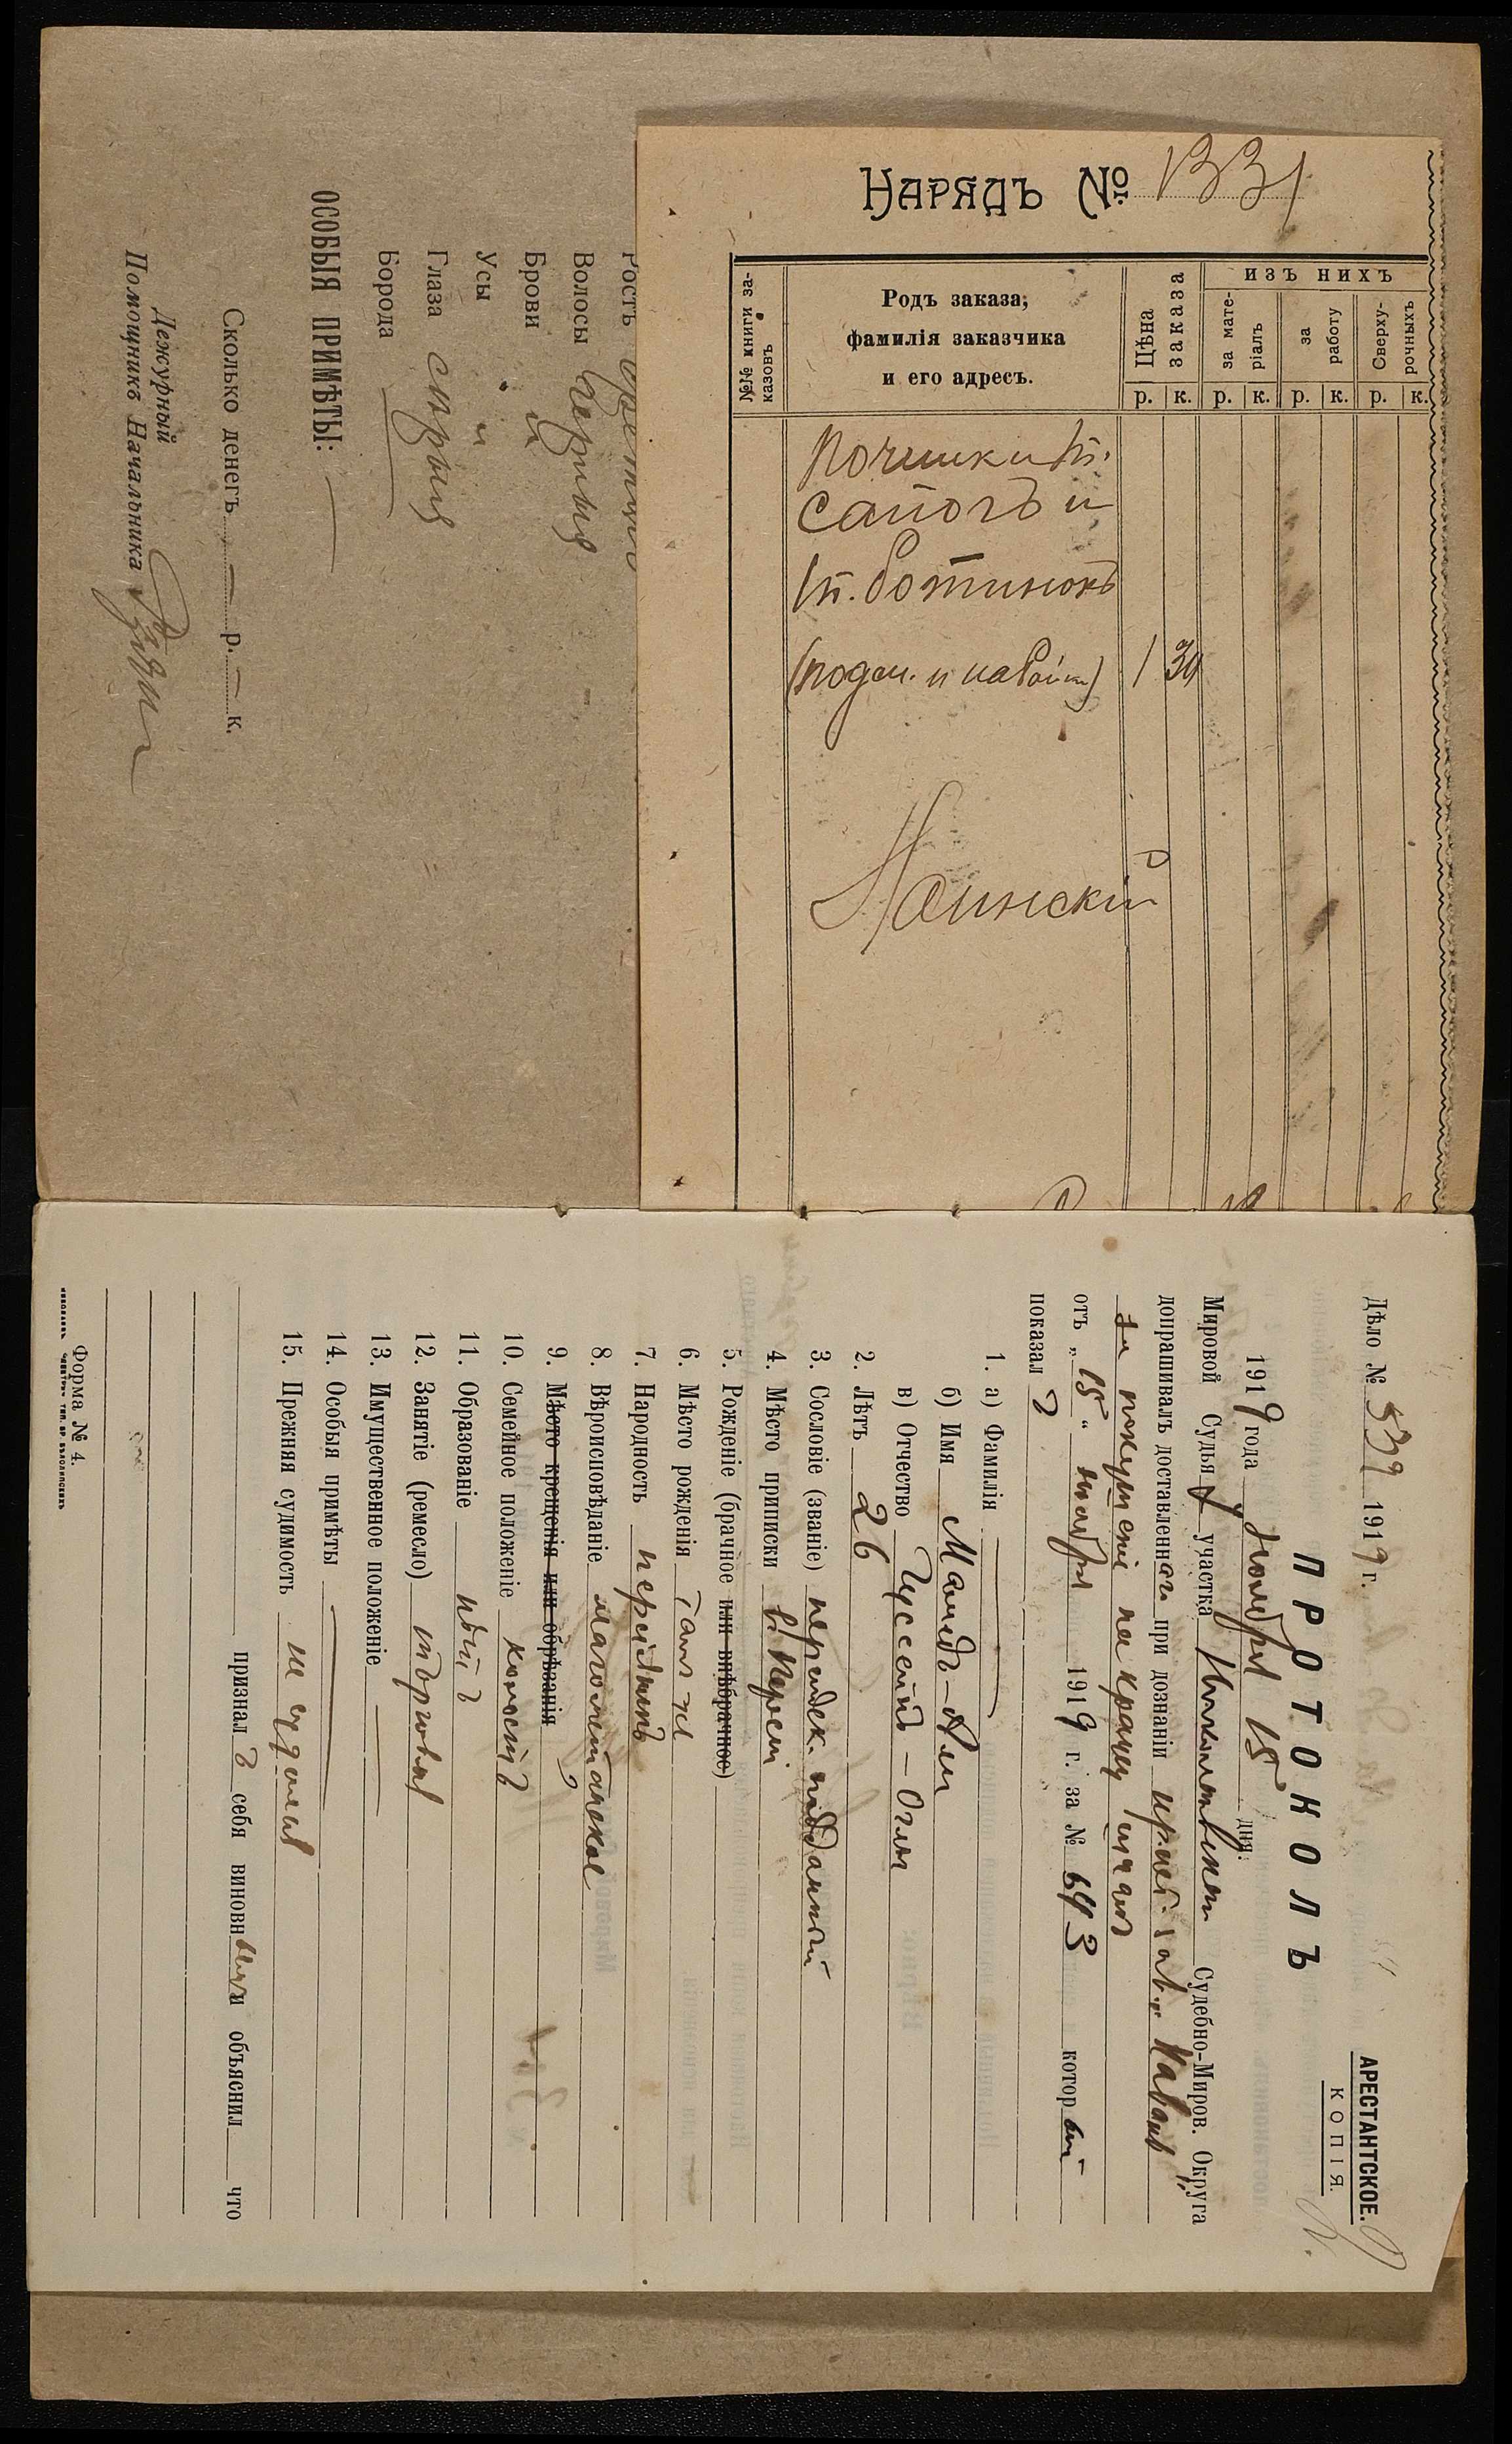 Нарядъ № 1331
№№ книги за-
казовъ
Родъ заказа,
фамилія заказчика
и его адресъ.
Цѣна
заказа
изъ нихъ
за мате-
ріалъ
за
работу
Сверху-
рочныхъ
р. к. р. к. р. к. р. к.
Починки 1п.
сапогъ и
1п. ботинокъ
(подм. и набойки) 1 30
Ростъ
Волосы черные
Брови "
Усы "
Глаза сѣрые
Борода —
ОСОБЫЯ ПРИМѢТЫ: —
Сколько денегъ — р. — к.
Дежурный
Помощникъ Начальника
Дѣло № 539 1919 г.
АРЕСТАНТСКОЕ.
КОПІЯ.
ПРОТОКОЛЪ
1919 года Ноября 15 дня:
Мировой Судья 7 участка Судебно-Миров. Округа
допрашивалъ доставленнаго при дознаніи
за покушеніе на кражу
отъ „15“ ноября 1919 г. за № 643 который
показал ъ
1. а) Фамилія —
б) Имя Мамедъ-Али
в) Отчество Гуссейнъ-Оглы
2. Лѣтъ 26
3. Сословіе (званіе) персидск. подданный
4. Мѣсто приписки въ Персіи
5. Рожденіе (брачное или внѣбрачное)
6. Мѣсто рожденія тамъ же
7. Народность персіянинъ
8. Вѣроисповѣданіе магометанское
9. Мѣсто крещенія или обрѣзанія
10. Семейное положеніе холостъ
11. Образованіе нѣтъ
12. Занятіе (ремесло) торговля
13. Имущественное положеніе —
14. Особыя примѣты —
15. Прежняя судимость не судился
призналъ себя виновнымъ и объяснил что
Форма № 4.